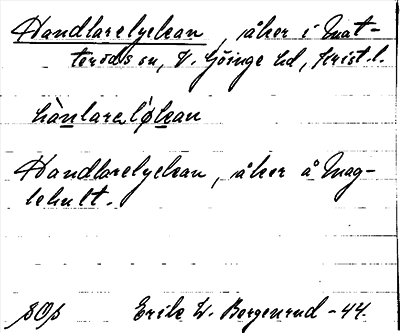 Handlarelyckan, åker i Mat-
teröds sn, V. Göinge hd, Krist. l.
hànlareløkan
Handlarelyckan, åker å Mag-
lehult.
Erik W. Bergenrud -44.